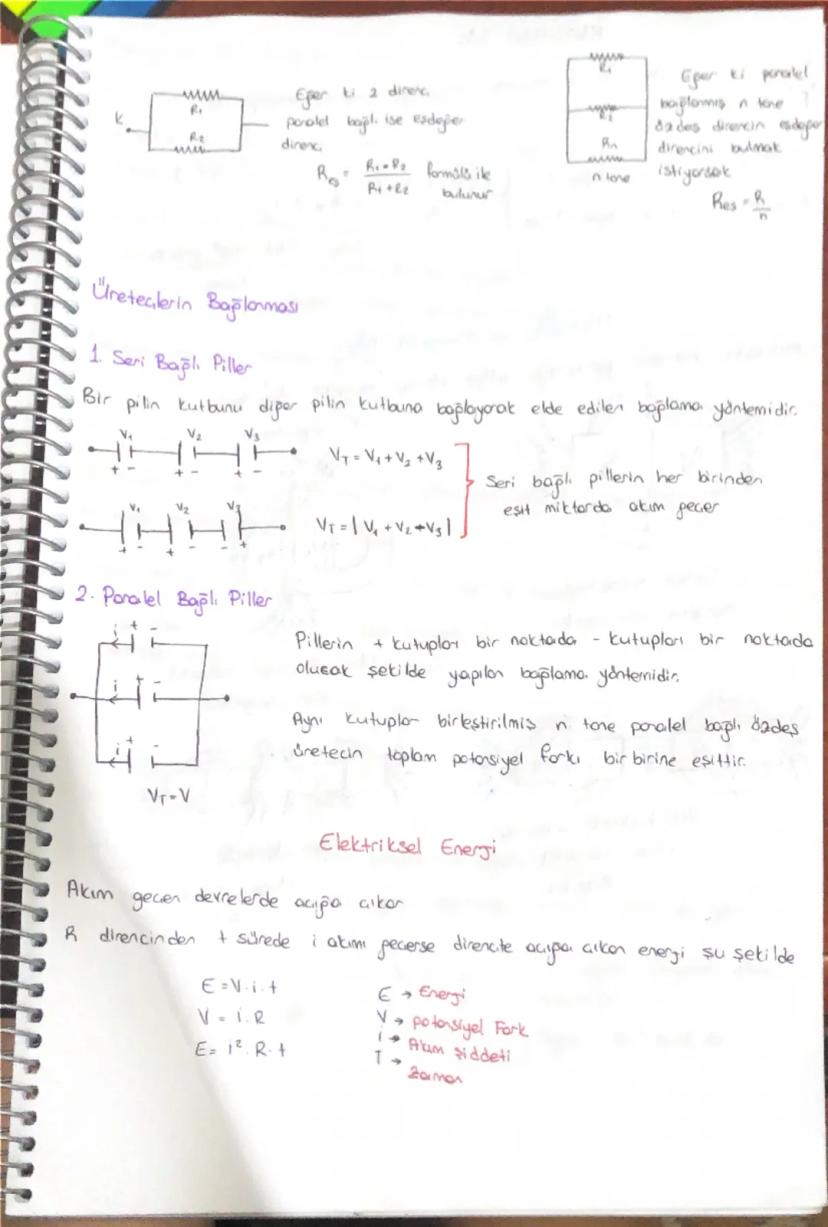 R₁
R₂
K
Eğer ki 2 direnc
paralel bağlı ise eşdeğer
direnc
Reş = R₁ × R₂ / R₁ + R₂ formülü ile
bulunur
R₁
R₂
Rn
n tane
Eğer ki paralel
bağlanmış n tane
özdeş direncin eşdeğer
direncini bulmak
istiyorsak
Reş = R/n
Üreteçlerin Bağlanması
1. Seri Bağlı Piller
Bir pilin kutbunu diğer pilin kutbuna bağlayarak elde edilen bağlama yöntemidir.
V₁ V₂ V₃
+ - + - + -
VT = V₁ + V₂ + V₃
Seri bağlı pillerin her birinden
eşit miktarda akım geçer
V₁ V₂ V₃
+ - + - - +
VT = | V₁ + V₂ - V₃ |
2. Paralel Bağlı Piller
i + -
i + -
i + -
VT = V
Pillerin + kutupları bir noktada - kutupları bir noktada
olucak şekilde yapılan bağlama yöntemidir.
Aynı kutuplar birleştirilmiş n tane paralel bağlı özdeş
üretecin toplam potansiyel farkı birbirine eşittir.
Elektriksel Energi
Akım geçen devrelerde açığa çıkar
R direncinden t sürede i akımı geçerse dirençte açığa çıkan energi şu şekilde
E = V.i.t
V = i.R
E = i².R.t
E → Energi
V → potansiyel Fark
i → Akım şiddeti
T → Zaman